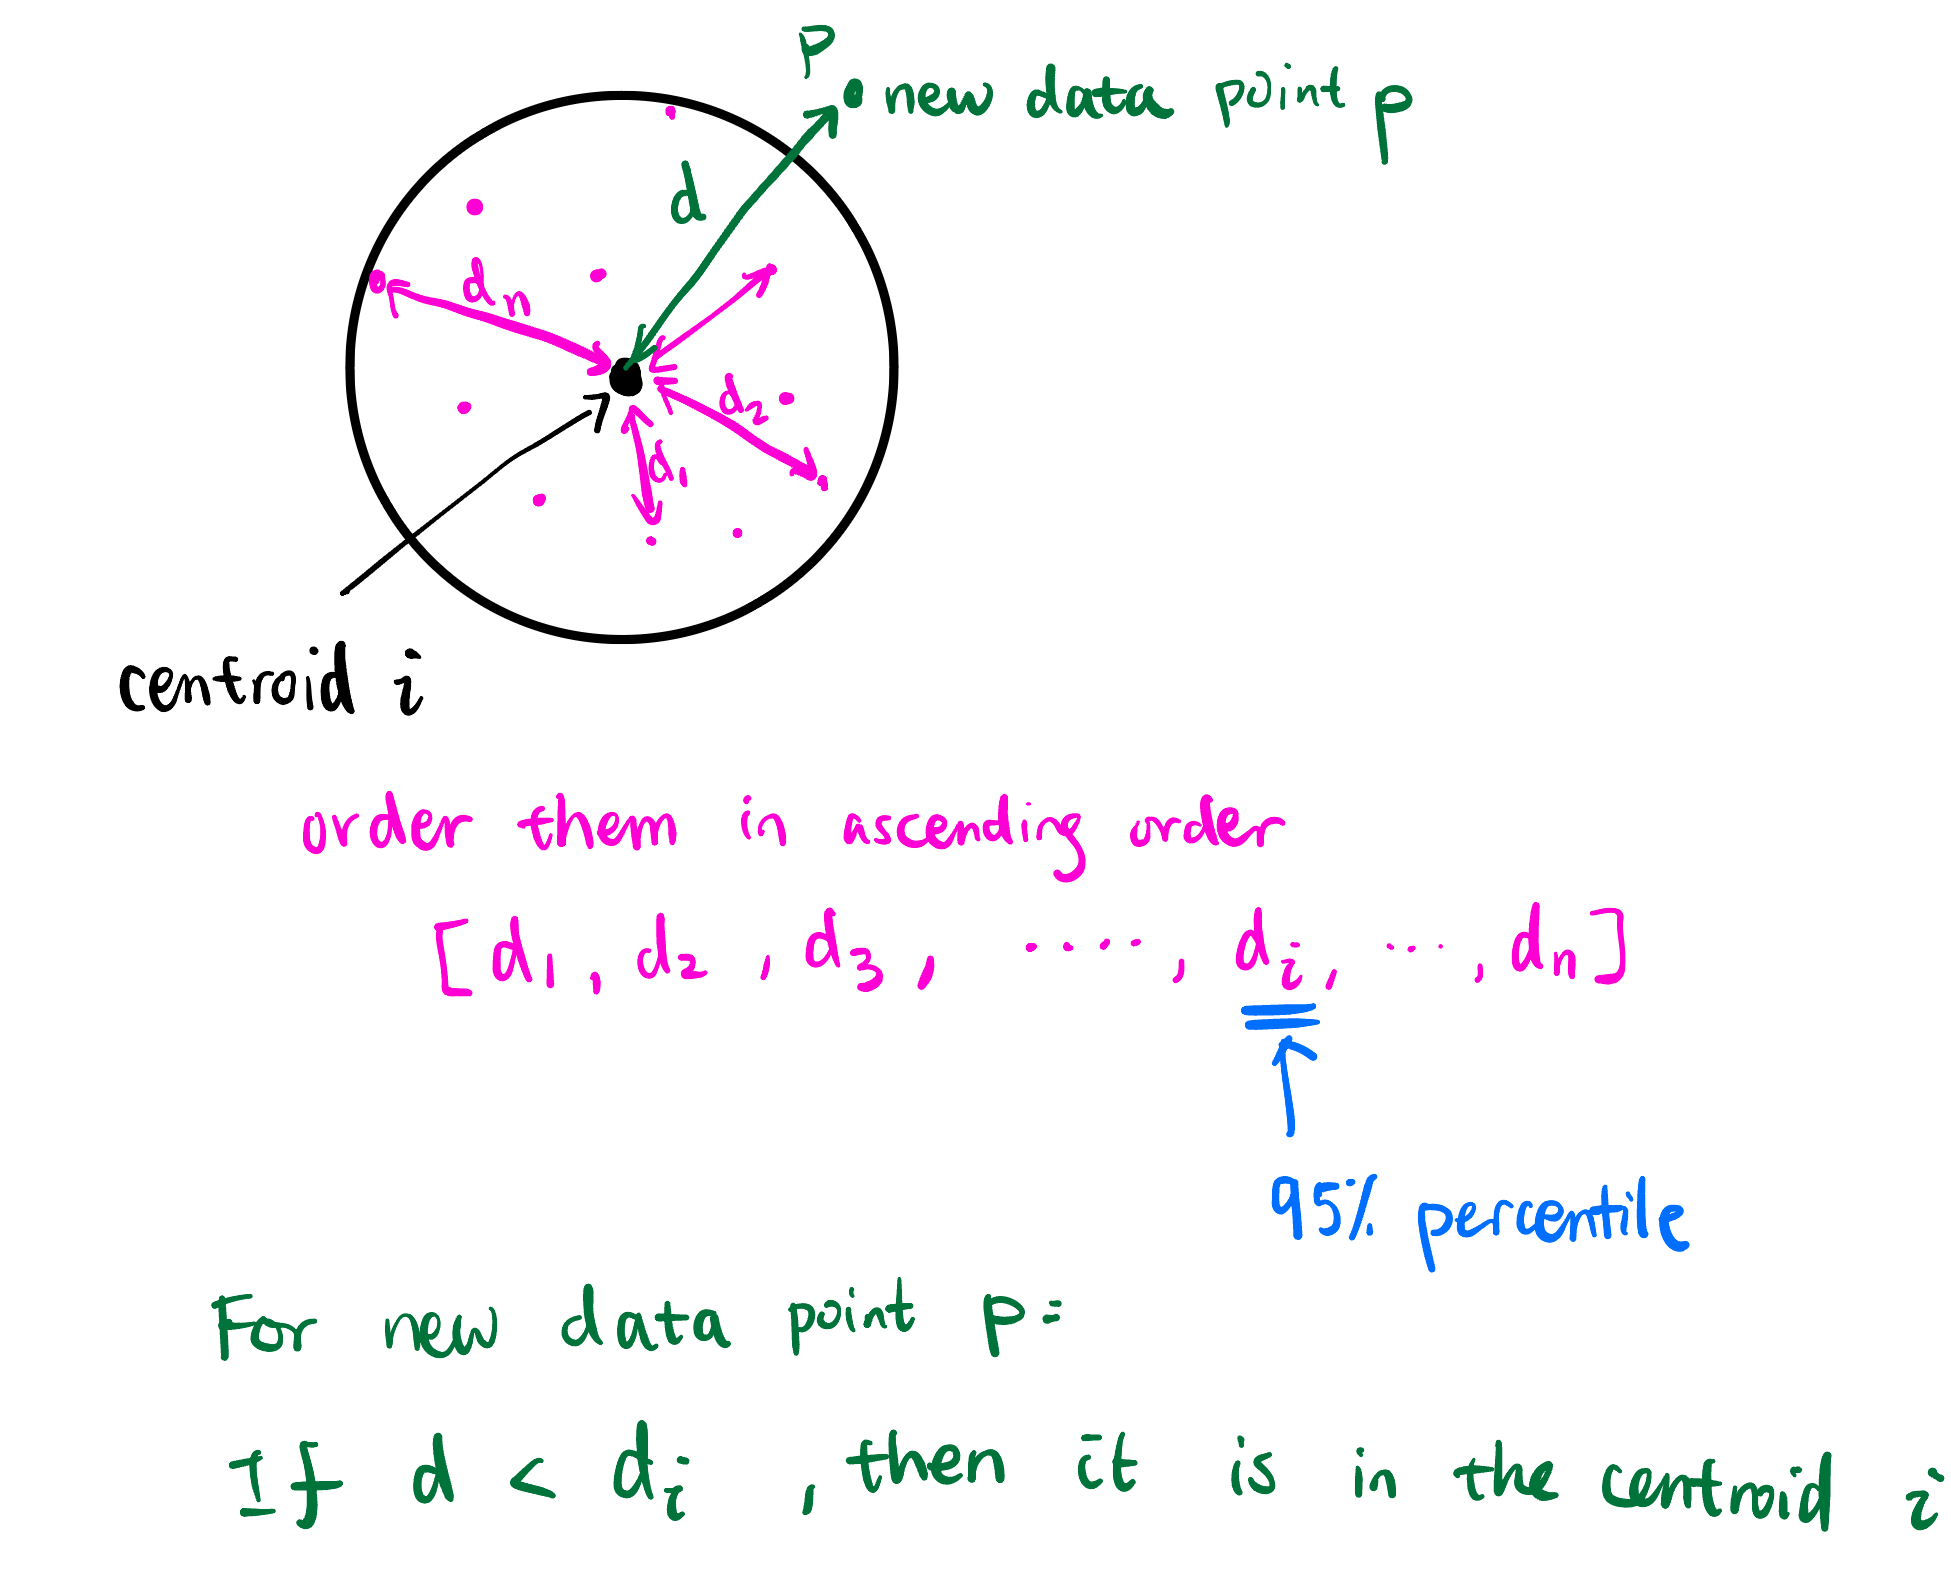 P
new data point p
d
dn
d2
d1
centroid i
order them in ascending order
[d1, d2, d3, ...., di, ..., dn]
95% percentile
For new data point p:
If d < di, then it is in the centroid i